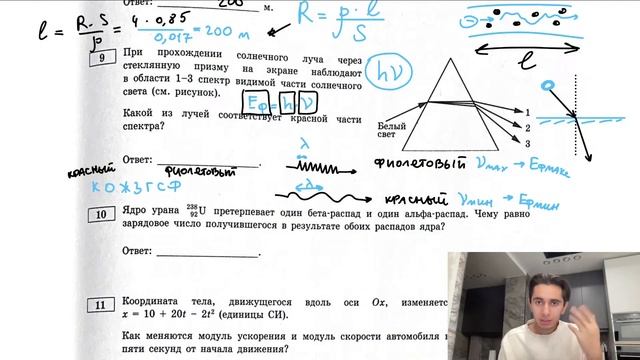 Ответ: 200 м.
l = R·S/ρ = 4·0,85/0,017 = 200 м
R = ρ·l/S
l
9
При прохождении солнечного луча через
стеклянную призму на экране наблюдают
в области 1–3 спектр видимой части солнечного
света (см. рисунок).
hν
Eф = h ν
Какой из лучей соответствует красной части
спектра?
Белый
свет
1
2
3
Ответ:
красный
фиолетовый
К О Ж З Г С Ф
λ
фиолетовый νмах → Eфмакс
λ
красный νмин → Eфмин
10
Ядро урана ²³⁸₉₂U претерпевает один бета-распад и один альфа-распад. Чему равно
зарядовое число получившегося в результате обоих распадов ядра?
Ответ:
11
Координата тела, движущегося вдоль оси Ox, изменяетс
x = 10 + 20t − 2t² (единицы СИ).
Как меняются модуль ускорения и модуль скорости автомобиля
пяти секунд от начала движения?